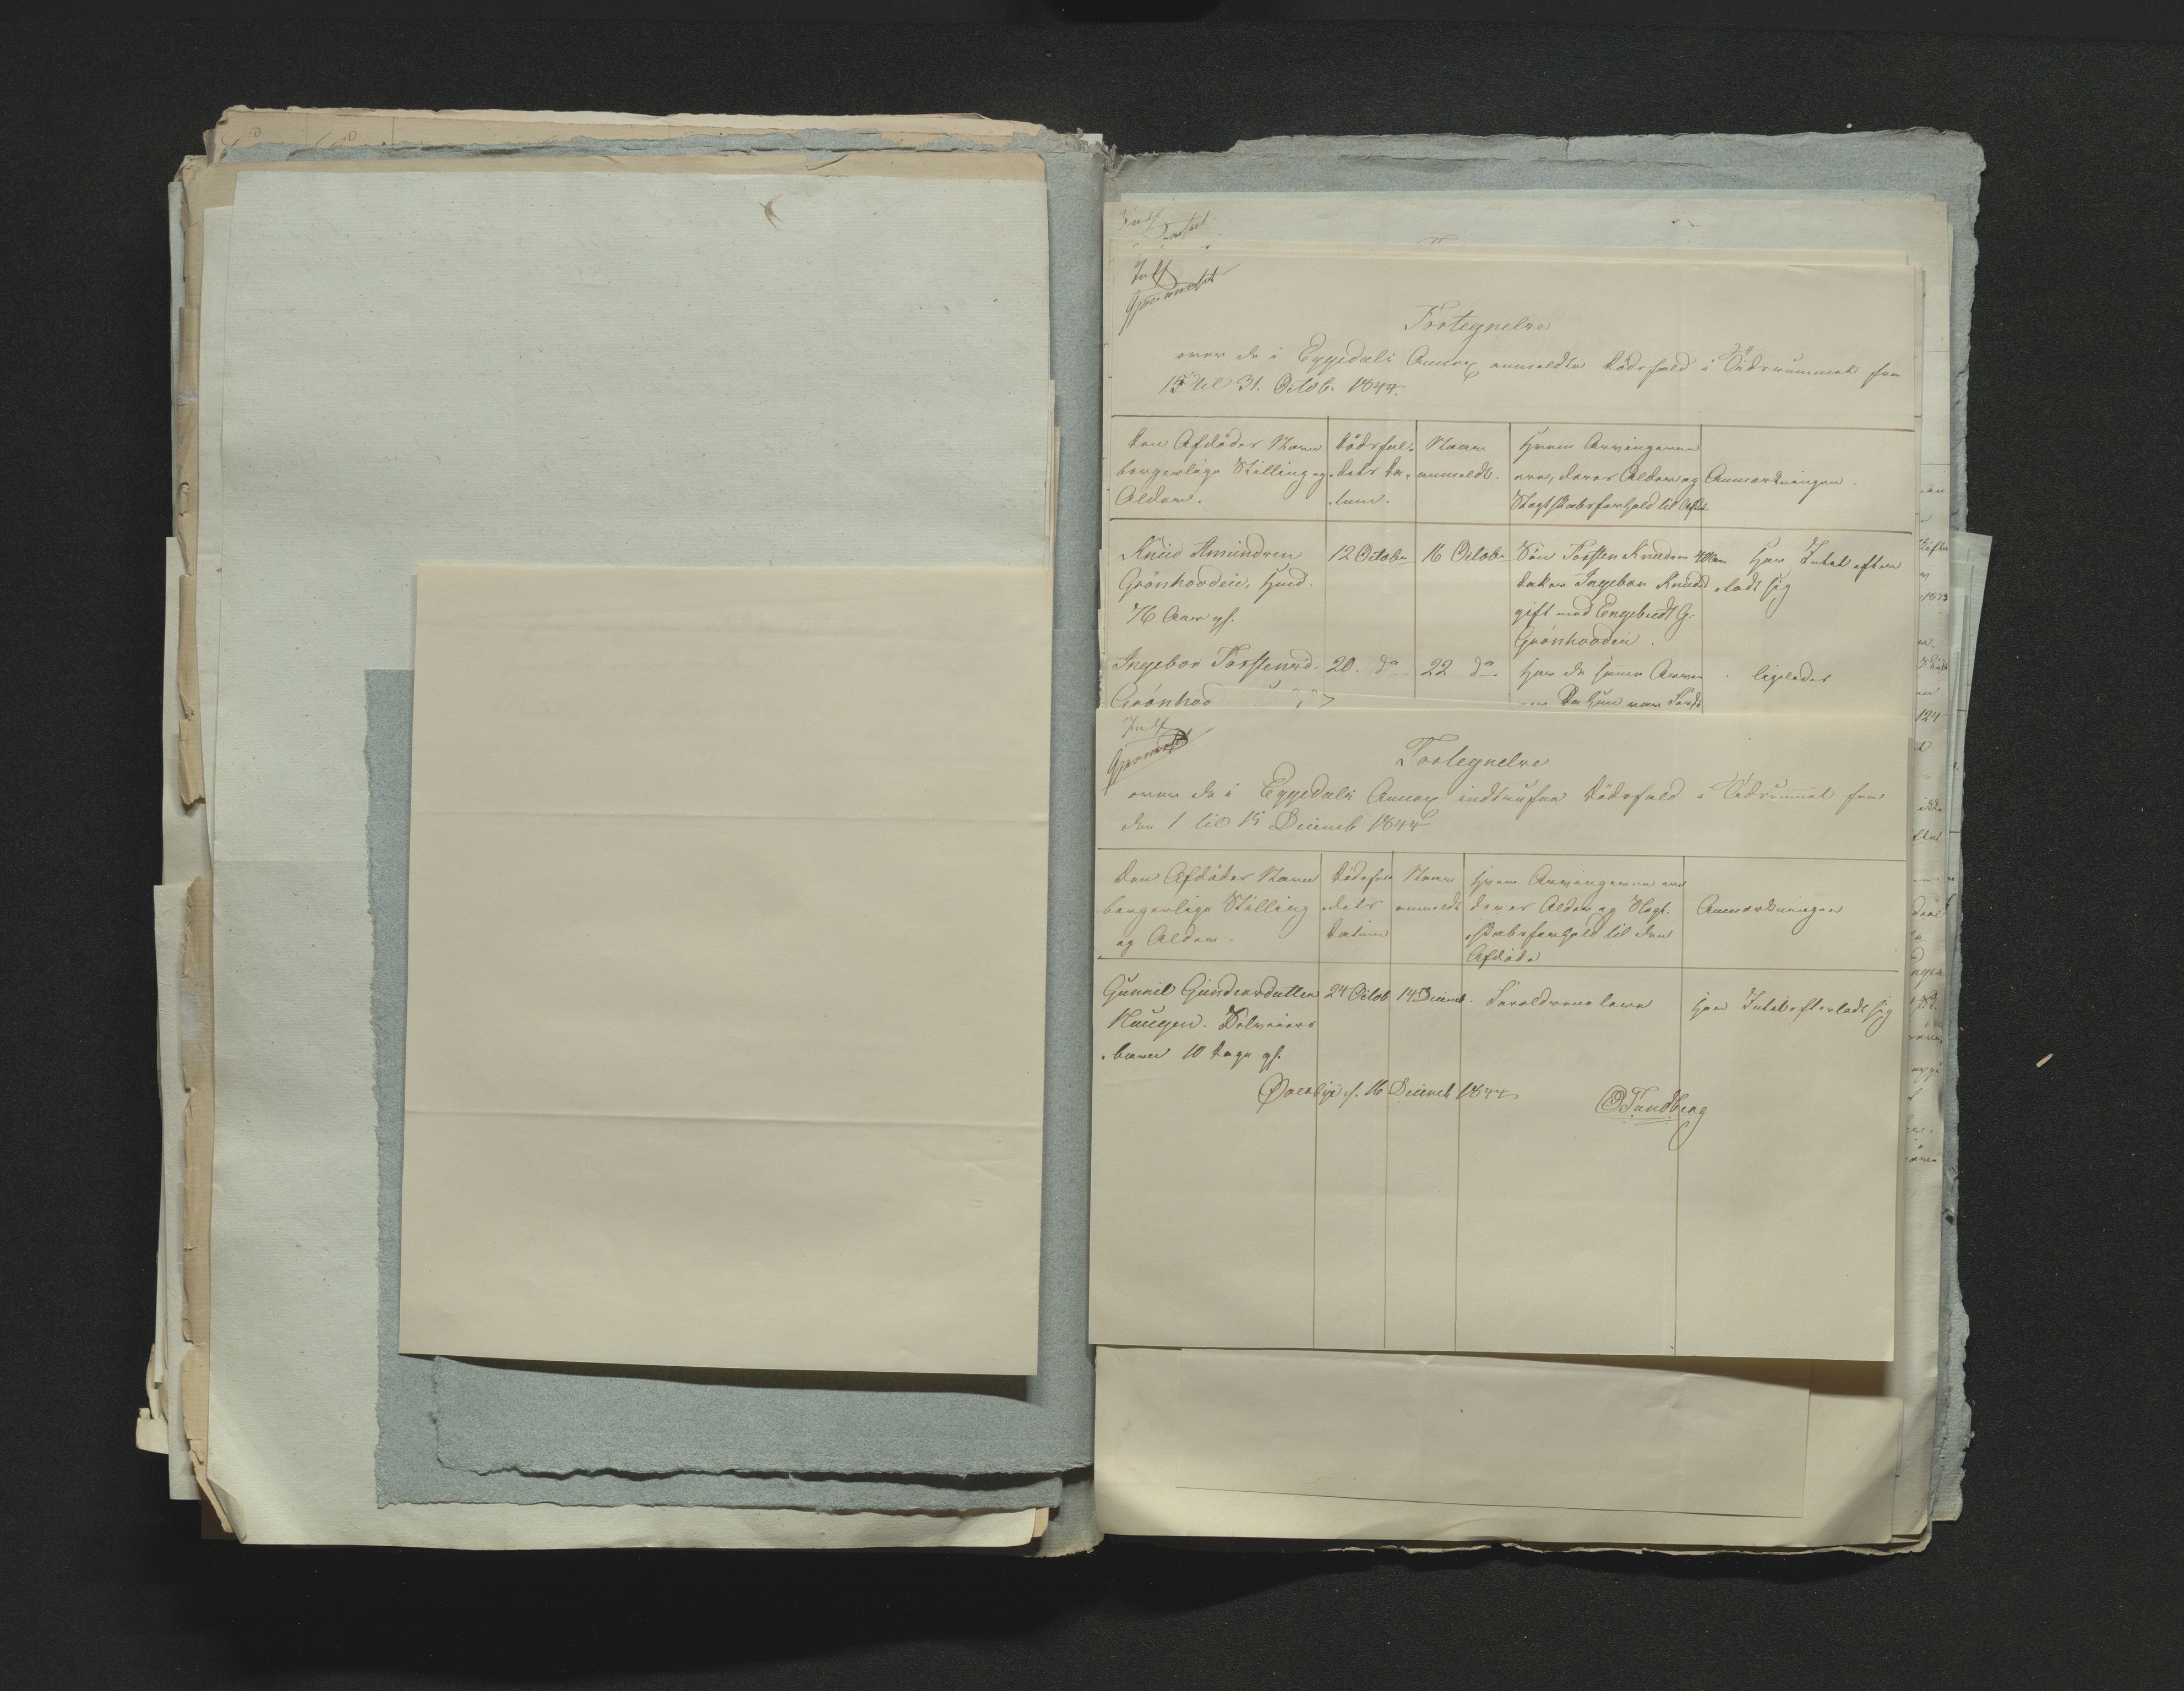 Indf
Gjennemseet
Fortegnelse
over de i Eggedals Annex anmeldte Dödsfald i Tidsrummet fra
15 til 31. Octob. 1844.
Den Afdödes Navn
borgerlige Stilling og
Alder.
Dödsfal-
dets Da-
tum.
Naar
anmeldt.
Hvem Arvingerne
ere, deres Alder og
Slægtskabsforhold til Afdöd.
Anmærkninger.
Knud Amundsen
Grönhovdeie, Huusd.
76 Aar gl.
12 Octobr
16 Octobr
Sön Torsten Knudsen 40 Aar
Datter Ingebor Knudsd
gift med Engebredt G.
Grönhovdeie.
Har Intet efter
ladt sig
Ingebor Torstensd.
Grönhod
20. do
22 do
Har de samme Arvin
Da Hun var
ligeledes
Indf
Gjennemseet
Fortegnelse
over de i Eggedals Annex indtrufne Dödsfald i Tidsrummet fra
den 1 til 15 Decemb 1844
Den Afdödes Navn
borgerlige Stilling
og Alder.
Dödsfal
dets
Datum
Naar
anmeldt
Hvem Arvingerne ere
deres Alder og Slægt-
skabsforhold til den
Afdöde
Anmærkninger
Gunnil Gundersdatter
Haugen. Selveiers
barn 10 Dage gl.
24 Octob
14 Decemb.
Forældrene leve
Har Intet efterladt sig
Overbye d. 16 Decemb 1844
O Tandberg